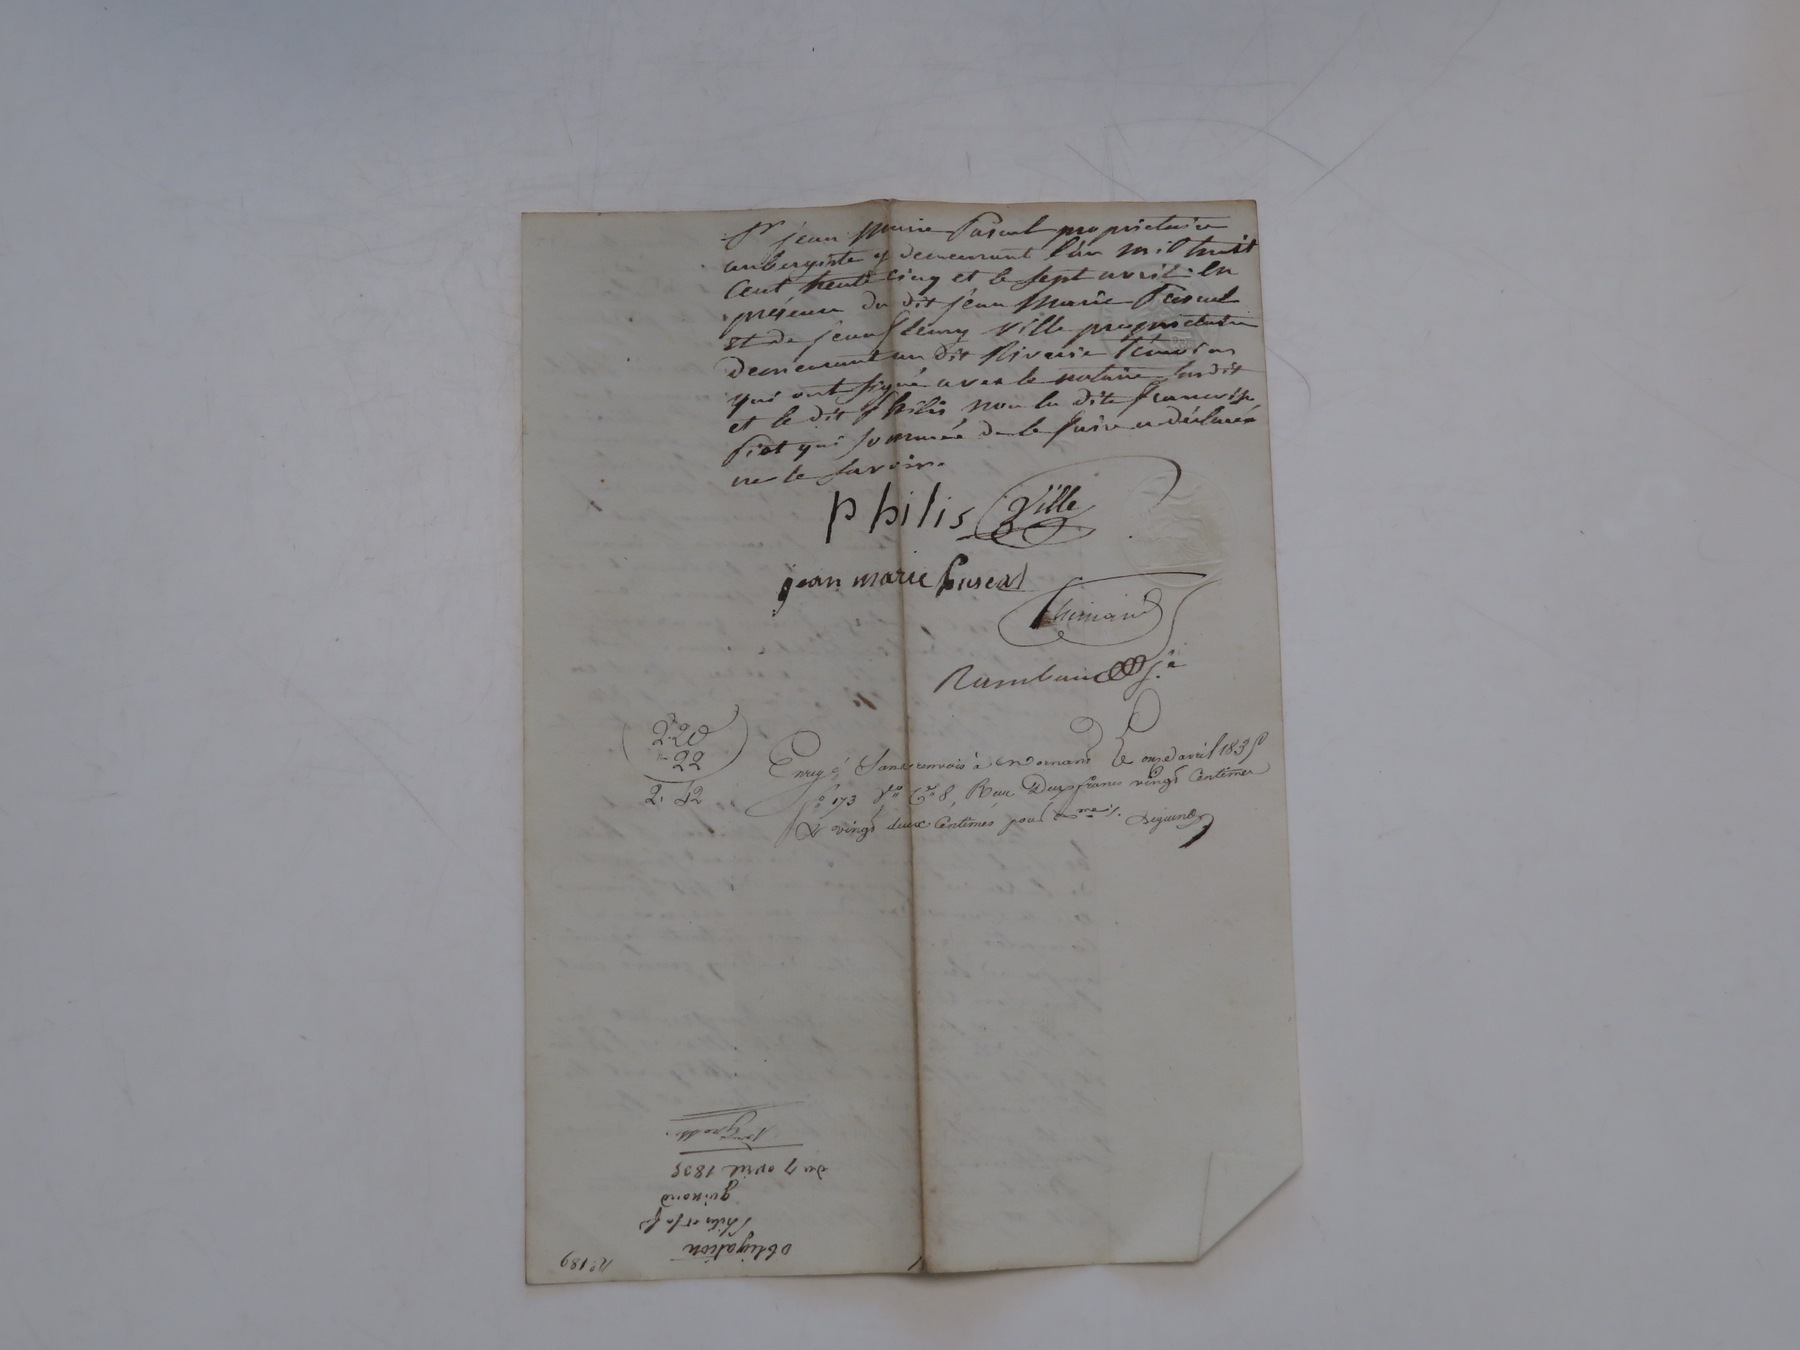 Sr jean Marie Pascal propriétaire
aubergiste y demeurant l'an mil huit
Cent trente cinq et le sept avril. En
présence du dit jean Marie Pascal
et de jean fleury Ville propriétaire
demeurant au dit Riverie témoins
qui ont signé avec le notaire susdit
et le dit Philis non la dite françoise
Piot qui sommée de le faire a déclaré
ne le savoir.
Philis Ville
jean marie Pascal
Rambaud
2. 20
22
2. 42
Enregé Sans renvois à Mornant Le onze avril 1835
fo 173 Vo Co 8, Reçu Deux francs vingt Centimes
& vingt deux Centimes pour
Obligation
Philis et sa fe
guinand
du 7 avril 1835
Grosse
No 189